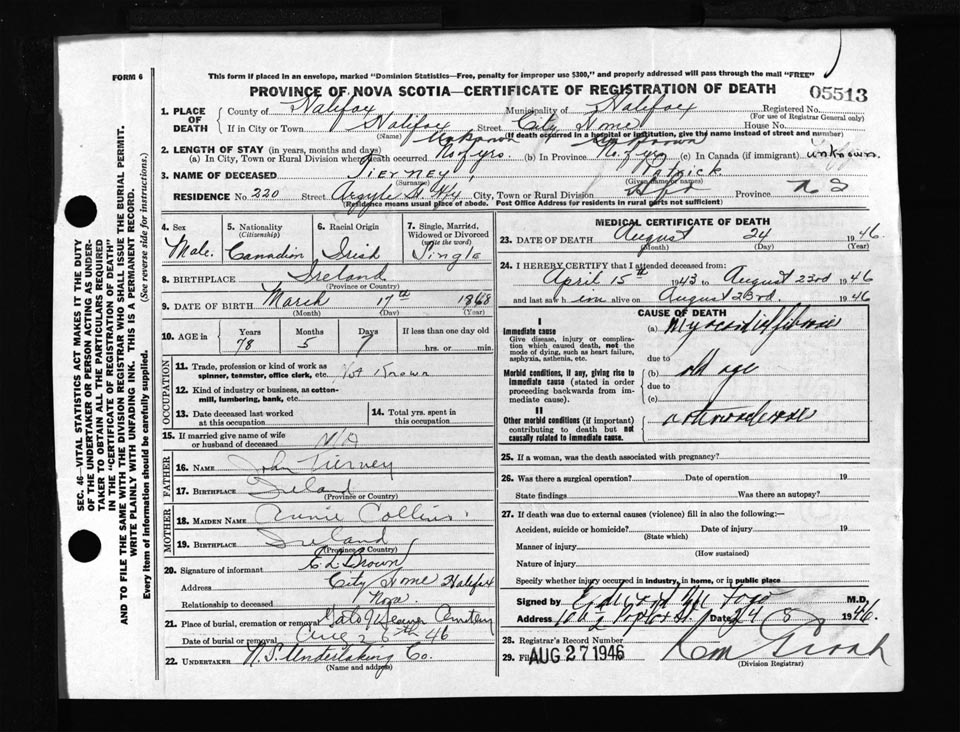 FORM 6
This form if placed in an envelope, marked "Dominion Statistics—Free, penalty for improper use $300," and properly addressed will pass through the mail "FREE"
PROVINCE OF NOVA SCOTIA—CERTIFICATE OF REGISTRATION OF DEATH
05513
1. PLACE OF DEATH { County of Halifax Municipality of Halifax Registered No.
(For use of Registrar General only)
If in City or Town Halifax Street City Home House No.
(Name) (If death occurred in a hospital or institution, give the name instead of street and number)
Unknown Unknown
2. LENGTH OF STAY (in years, months and days)
(a) In City, Town or Rural Division where death occurred No. of yrs. (b) In Province No. of yrs (c) In Canada (if immigrant) unknown.
3. NAME OF DECEASED Tierney, Patrick
(Surname) (Given name or names)
RESIDENCE No. 220 Street Argyle St. Hfx City, Town or Rural Division Province N S
(Residence means usual place of abode. Post Office Address for residents in rural parts not sufficient)
4. Sex Male.
5. Nationality (Citizenship) Canadian
6. Racial Origin Irish
7. Single, Married, Widowed or Divorced (write the word) Single
8. BIRTHPLACE Ireland
(Province or Country)
9. DATE OF BIRTH March 17th 1868
(Month) (Day) (Year)
10. AGE in { Years 78 Months 5 Days 7 If less than one day old
hrs. or min.
OCCUPATION
11. Trade, profession or kind of work as spinner, teamster, office clerk, etc. Not Known
12. Kind of industry or business, as cotton-mill, lumbering, bank, etc.
13. Date deceased last worked at this occupation
14. Total yrs. spent in this occupation
15. If married give name of wife or husband of deceased
FATHER
16. NAME John Tierney
17. BIRTHPLACE Ireland
(Province or Country)
MOTHER
18. MAIDEN NAME Annie Collins
19. BIRTHPLACE Ireland
(Province or Country)
20. Signature of informant E L Brown
Address City Home Halifax
Relationship to deceased None.
21. Place of burial, cremation or removal Gate of Heaven Cemetery
Date of burial or removal Aug 26th 46
22. UNDERTAKER N.S. Undertaking Co.
(Name and address)
MEDICAL CERTIFICATE OF DEATH
23. DATE OF DEATH August 24 1946
(Month) (Day) (Year)
24. I HEREBY CERTIFY that I attended deceased from:
April 15th 1943 to August 23rd 1946
and last saw him alive on August 23rd. 1946
CAUSE OF DEATH
I
Immediate cause
Give disease, injury or complication which caused death, not the mode of dying, such as heart failure, asphyxia, asthenia, etc.
(a)
due to
Morbid conditions, if any, giving rise to immediate cause (stated in order proceeding backwards from immediate cause).
(b) old age
due to
(c)
II
Other morbid conditions (if important) contributing to death but not causally related to immediate cause.
25. If a woman, was the death associated with pregnancy?
26. Was there a surgical operation? Date of operation 19
State findings Was there an autopsy?
27. If death was due to external causes (violence) fill in also the following:—
Accident, suicide or homicide? Date of injury 19
(State which)
Manner of injury
(How sustained)
Nature of injury
Specify whether injury occurred in industry, in home, or in public place
Signed by M.D,
Address Date 24 8 1946.
28. Registrar's Record Number
29. Filed AUG 27 1946
(Division Registrar)
SEC. 46—VITAL STATISTICS ACT MAKES IT THE DUTY
OF THE UNDERTAKER OR PERSON ACTING AS UNDER-
TAKER TO OBTAIN ALL THE PARTICULARS REQUIRED
IN THE "CERTIFICATE OF REGISTRATION OF DEATH"
AND TO FILE THE SAME WITH THE DIVISION REGISTRAR WHO SHALL ISSUE THE BURIAL PERMIT.
WRITE PLAINLY WITH UNFADING INK. THIS IS A PERMANENT RECORD.
Every item of information should be carefully supplied. (See reverse side for instructions.)